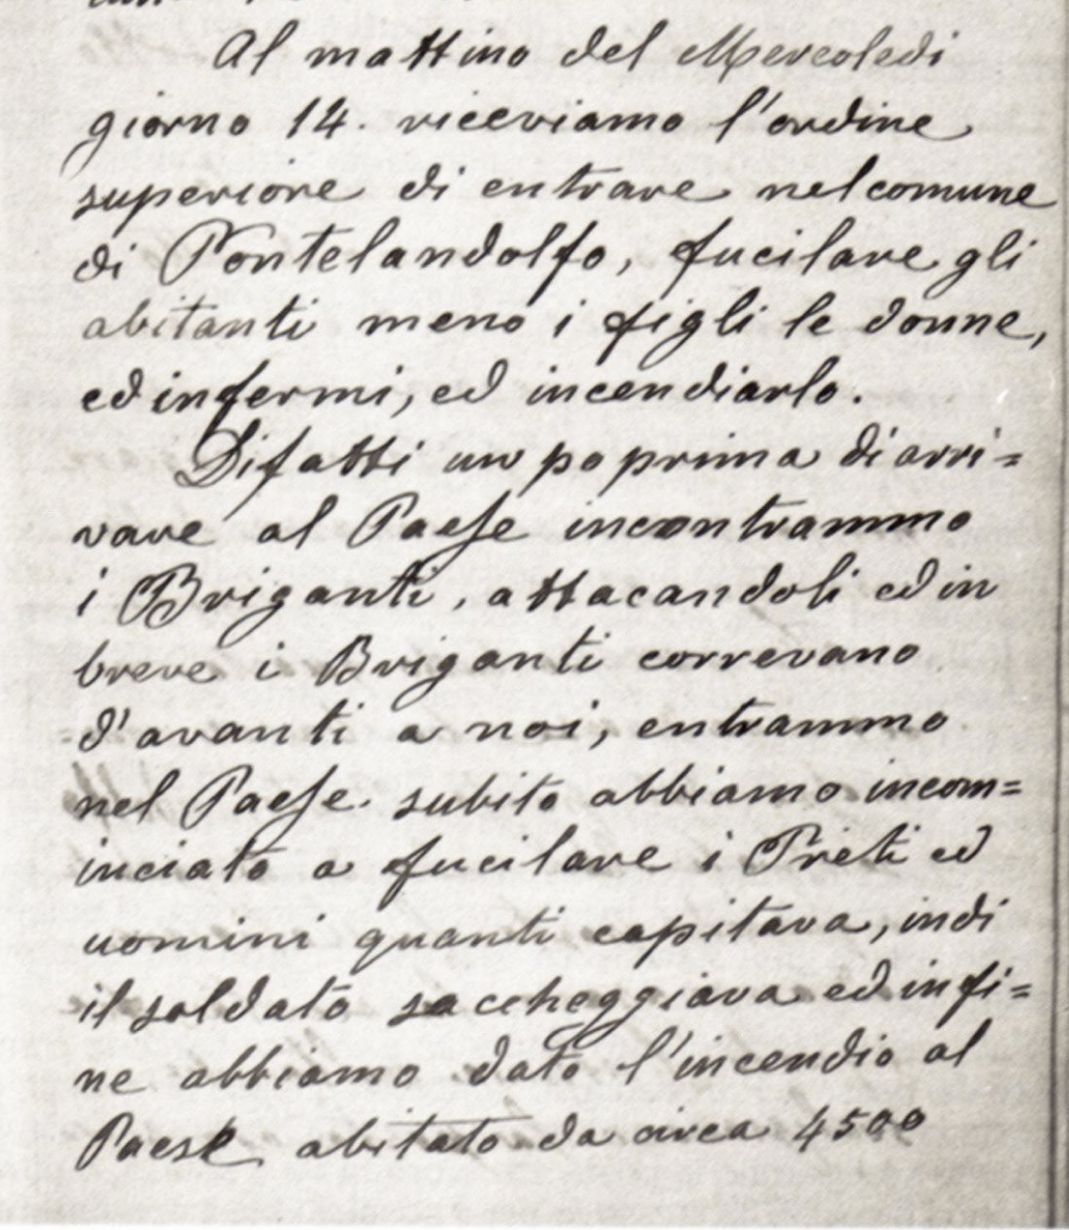 Al mattino del Mercoledi
giorno 14. riceviamo l'ordine
superiore di entrare nel comune
di Pontelandolfo, fucilare gli
abitanti meno i figli le donne,
ed infermi, ed incendiarlo.
Difatti un po prima di arri=
vare al Paese incontrammo
i Briganti, attacandoli ed in
breve i Briganti correvano
d'avanti a noi, entrammo
nel Paese. subito abbiamo incom=
inciato a fucilare i Preti ed
uomini quanti capitava, indi
il soldato saccheggiava ed infi=
ne abbiamo dato l'incendio al
Paese abitato da circa 4500